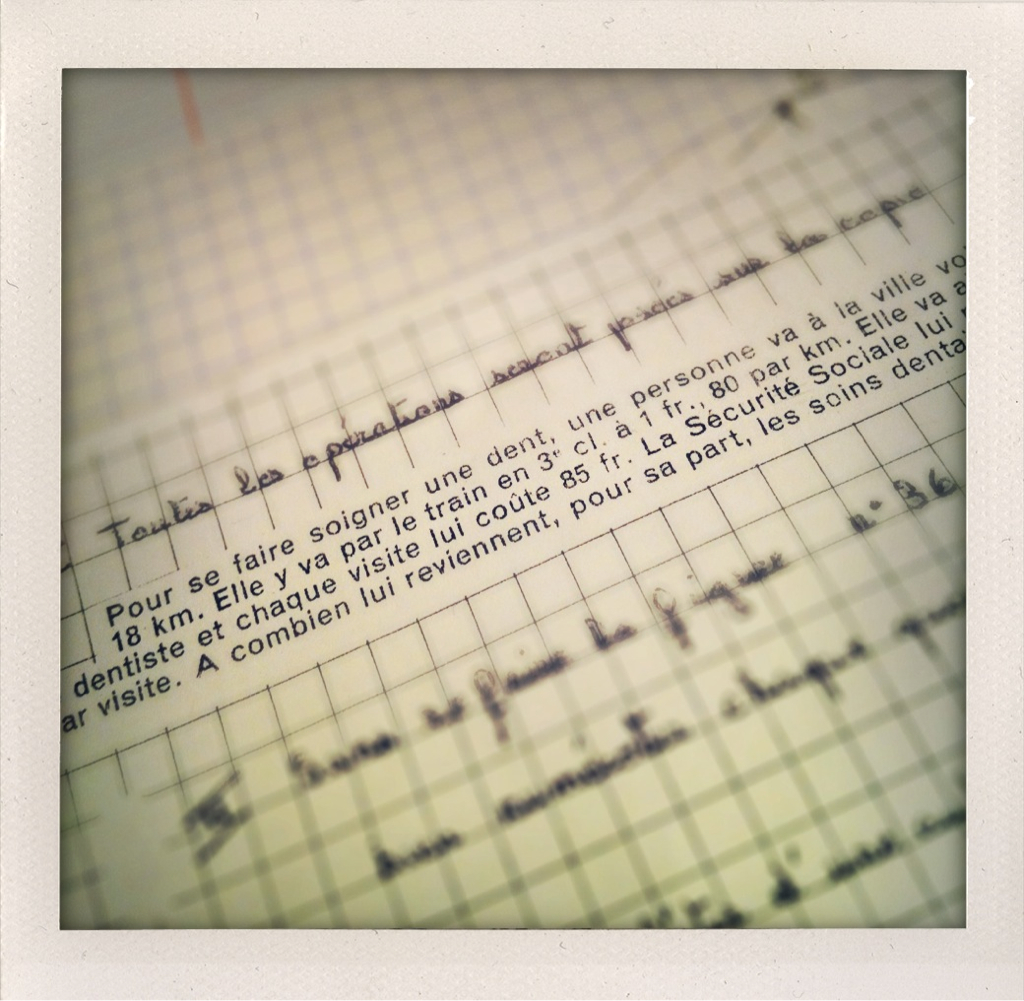 Toutes les opérations seront posées sur la copie
Pour se faire soigner une dent, une personne va à la ville vo
18 km. Elle y va par le train en 3e cl. à 1 fr., 80 par km. Elle va a
dentiste et chaque visite lui coûte 85 fr. La Sécurité Sociale lui
ar visite. A combien lui reviennent, pour sa part, les soins denta
la figure n° 36
chaque
d'une